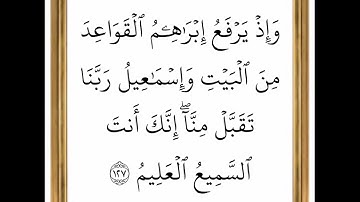 وَإِذۡ يَرۡفَعُ إِبۡرَٰهِـۧمُ ٱلۡقَوَاعِدَ
مِنَ ٱلۡبَيۡتِ وَإِسۡمَٰعِيلُ رَبَّنَا
تَقَبَّلۡ مِنَّآۖ إِنَّكَ أَنتَ
ٱلسَّمِيعُ ٱلۡعَلِيمُ ١٢٧